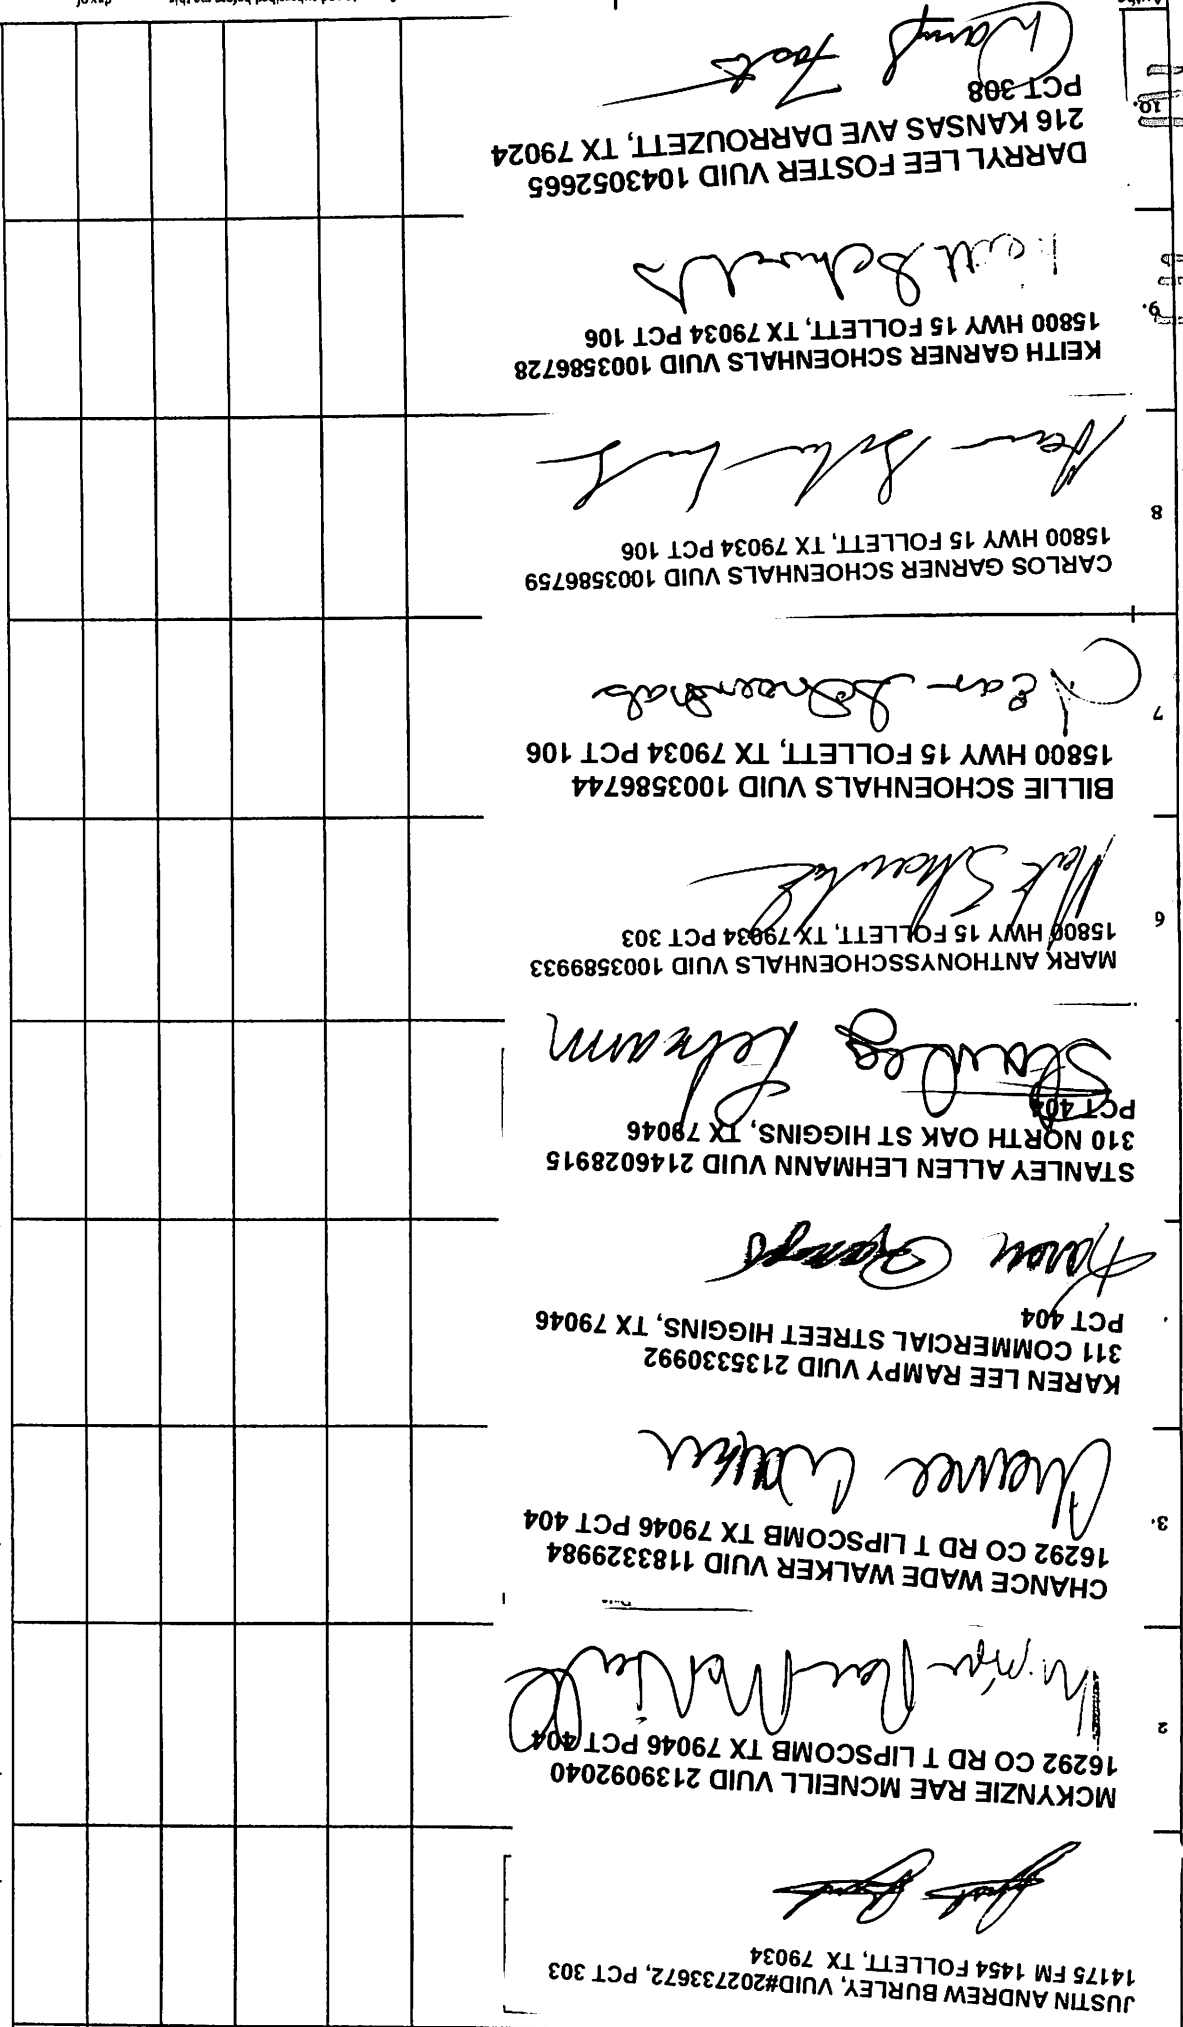 JUSTIN ANDREW BURLEY, VUID#2027333672, PCT 303
14175 FM 1454 FOLLETT, TX 79034
2
MCKYNZIE RAE MCNEILL VUID 2139092040
16292 CO RD T LIPSCOMB TX 79046 PCT 404
3.
CHANCE WADE WALKER VUID 1183329984
16292 CO RD T LIPSCOMB TX 79046 PCT 404
Chance Walker
KAREN LEE RAMPY VUID 2135330992
311 COMMERCIAL STREET HIGGINS, TX 79046
PCT 404
Karen Rampy
STANLEY ALLEN LEHMANN VUID 2146028915
310 NORTH OAK ST HIGGINS, TX 79046
PCT 404
Stanley Lehmann
6
MARK ANTHONYSSCHOENHALS VUID 1003589933
15800 HWY 15 FOLLETT, TX 79034 PCT 303
7
BILLIE SCHOENHALS VUID 1003586744
15800 HWY 15 FOLLETT, TX 79034 PCT 106
Jean Schoenhals
8
CARLOS GARNER SCHOENHALS VUID 1003586759
15800 HWY 15 FOLLETT, TX 79034 PCT 106
9.
KEITH GARNER SCHOENHALS VUID 1003586728
15800 HWY 15 FOLLETT, TX 79034 PCT 106
10.
DARRYL LEE FOSTER VUID 1043052665
216 KANSAS AVE DARROUZETT, TX 79024
PCT 308